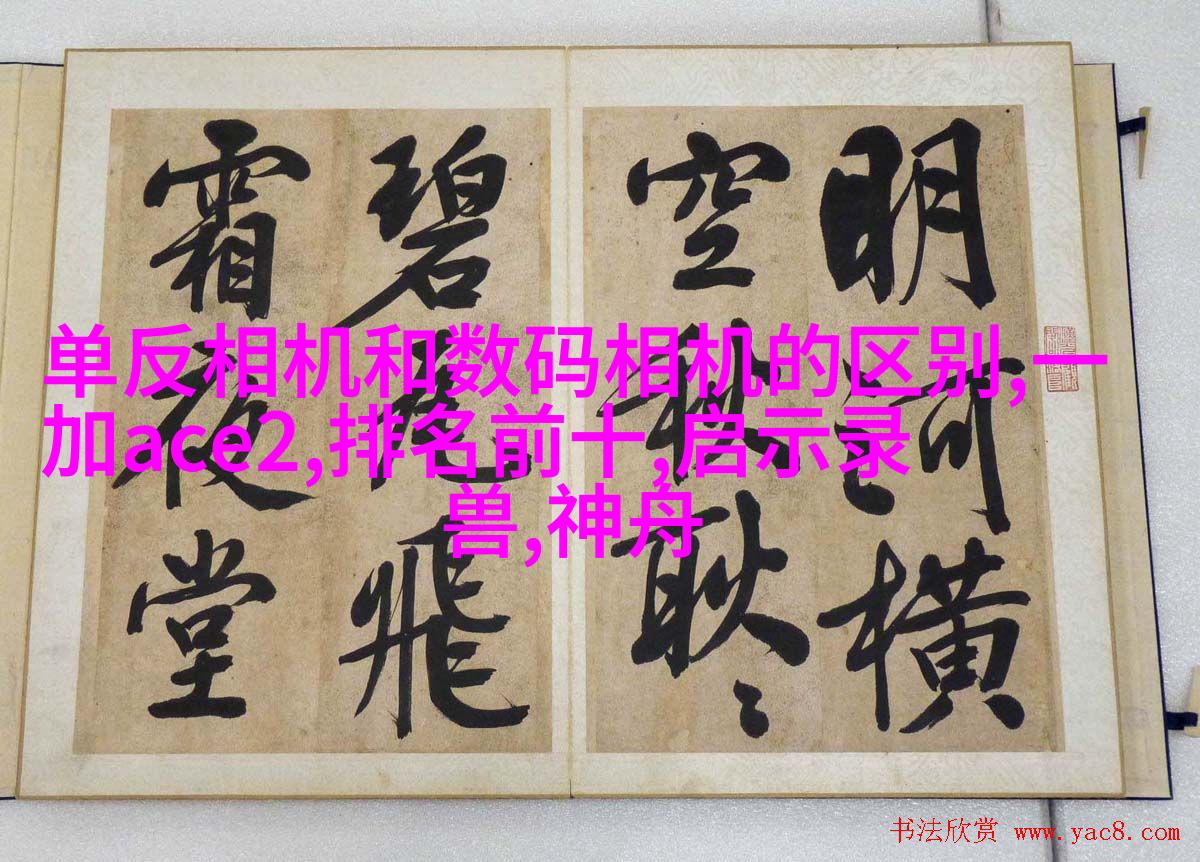 明河橫
空秋耿〻
碧瓦飛
霜夜堂
单反相机和数码相机的区别,一
加ace2,排名前十,启示录
兽,神舟
书法欣赏 www.yac8.com